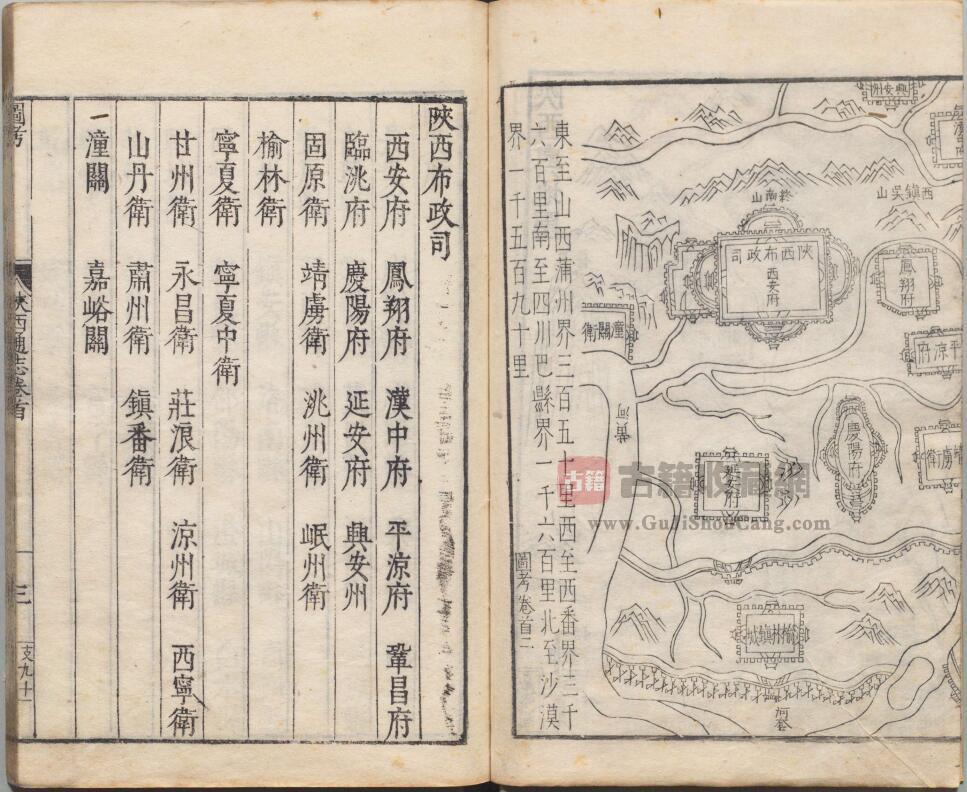 興安州
終南山
西鎮吳山
陝西布政司
西安府
鳳翔府
潼關衛
平涼府
黃河
慶陽府
延安府
榆林鎮城
河套
東至山西蒲州界三百五十里西至西番界三千
六百里南至四川巴縣界一千六百里北至沙漠
界一千五百九十里
圖考卷首二
古籍收藏網
www.GuJiShouCang.com
陝西布政司
西安府 鳳翔府 漢中府 平涼府 鞏昌府
臨洮府 慶陽府 延安府 興安州
固原衛 靖虜衛 洮州衛 岷州衛
榆林衛
寧夏衛 寧夏中衛
甘州衛 永昌衛 莊浪衛 涼州衛 西寧衛
山丹衛 肅州衛 鎮番衛
潼關 嘉峪關
圖考
陝西通志卷首
三
支九十